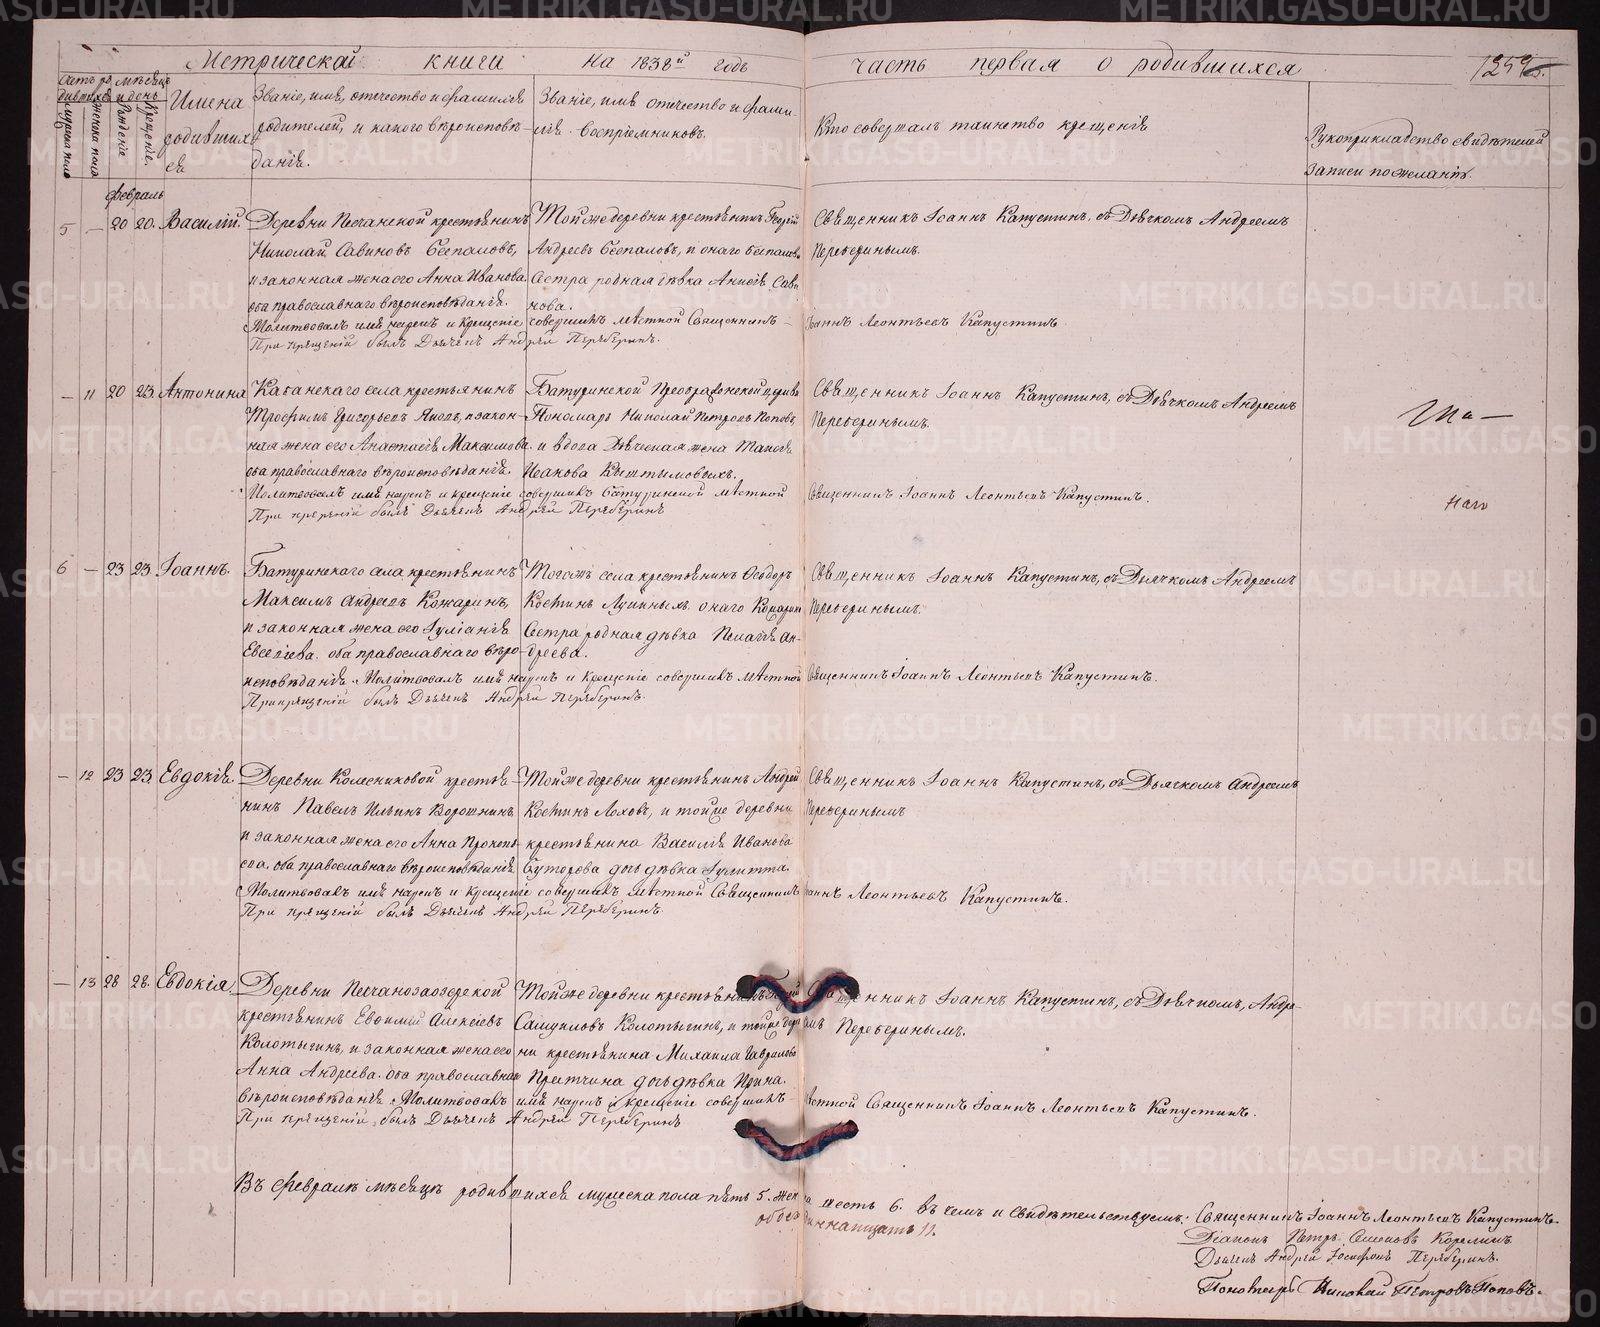 Метрической книги на 1838й годъ часть первая о родившихся
Счетъ родившихся
мѣсяцъ и день
Мужеска полу
Женска пола
Рожденіе
Крещеніе.
Имена родившихся
Званіе, имя, отечество и фамилія родителей, и какого вѣроисповѣданія.
Званіе, имя отечество и фамилія воспріемниковъ.
Кто совершалъ таинство крещенія
Рукоприкладство свидѣтелей записи по желанію.
Февраль
5 — 20 20. Василій.
Деревни Песчанской крестьянинъ
Николай Савиновъ Беспаловъ,
и законная жена его Анна Иванова
оба православнаго вѣроисповѣданія.
Тойже деревни крестьянинъ Георгій
Андреевъ Беспаловъ, и онаго Беспалова
Сестра родная дѣвка Анисія Сави-
нова.
Священникъ Іоаннъ Капустинъ, съ Дьячкомъ Андреемъ
Переберинымъ.
Молитвовалъ имя нарекъ и Крещеніе совершилъ мѣстной Священникъ Іоаннъ Леонтьевъ Капустинъ.
При крещеніи былъ Дьячекъ Андрей Переберинъ.
— 11 20 23. Антонина
Катанскаго села крестьянинъ
Трофимъ Григорьевъ, и закон-
ная жена его Анастасія Максимова.
оба православнаго вѣроисповѣданія.
Батуринской Преображенской церкви
Пономарь Николай Петровъ Поповъ,
и вдова Дьяческая жена
Исакова Кыштымовыхъ.
Священникъ Іоаннъ Капустинъ, съ Дьячкомъ Андреемъ
Переберинымъ.
Молитвовалъ имя нарекъ и крещеніе совершилъ Батуринской мѣстной Священникъ Іоаннъ Леонтьевъ Капустинъ.
При крещеніи былъ Дьячекъ Андрей Переберинъ
6 — 23 23 Іоаннъ.
Батуринскаго села крестьянинъ
Максимъ Андреевъ Кожаринъ,
и законная жена его Іуліанія
Евсевіева. оба православнаго вѣро-
исповѣданія.
Тогожъ села крестьянинъ Ѳеодоръ
Костинъ онаго Кожарина
Сестра родная дѣвка Пелагія Ан-
дреева.
Священникъ Іоаннъ Капустинъ, съ Дьячкомъ Андреемъ
Переберинымъ.
Молитвовалъ имя нарекъ и Крещеніе совершилъ мѣстной Священникъ Іоаннъ Леонтьевъ Капустинъ.
При крещеніи былъ Дьячекъ Андрей Переберинъ.
— 12 23 23. Евдокія.
Деревни Колесниковой крестья-
нинъ Павелъ Ильинъ Ворошнинъ
и законная жена его Анна Прокопь-
ева. оба православнаго вѣроисповѣданія
Тойже деревни крестьянинъ Андрей
Костинъ Лоховъ, и тойже деревни
крестьянина Василія Иванова
Буторова дочь дѣвка Іулитта.
Священникъ Іоаннъ Капустинъ, съ Дьячкомъ Андреемъ
Переберинымъ
Молитвовалъ имя нарекъ и Крещеніе совершилъ мѣстной Священникъ Іоаннъ Леонтьевъ Капустинъ.
При крещеніи былъ Дьячекъ Андрей Переберинъ.
— 13 28 28. Евдокія.
Деревни Песчанозаозерской
крестьянинъ Евѳимій Алексѣевъ
Колотыгинъ, и законная жена его
Анна Андреева. оба православнаго
вѣроисповѣданія.
Тойже деревни крестьянинъ
Самуиловъ Колотыгинъ, и тойже дерев-
ни крестьянина Михаила Гаврилова
дочь дѣвка Ирина.
Священникъ Іоаннъ Капустинъ, съ Дьячкомъ, Андре-
емъ Переберинымъ.
Молитвовалъ имя нарекъ и крещеніе совершилъ мѣстной Священникъ Іоаннъ Леонтьевъ Капустинъ.
При крещеніи былъ Дьячекъ Андрей Переберинъ
Въ февралѣ мѣсяцѣ родившихся мужеска пола пять 5. жен шесть 6. въ чемъ и свидѣтельствуемъ: Священникъ Іоаннъ Леонтьевъ Капустинъ.
обоего одиннадцать 11.
Діаконъ Петръ Корелинъ
Дьячекъ Андрей Іосифовъ Переберинъ.
Пономарь Николай Петровъ Поповъ.
METRIKI.GASO-URAL.RU